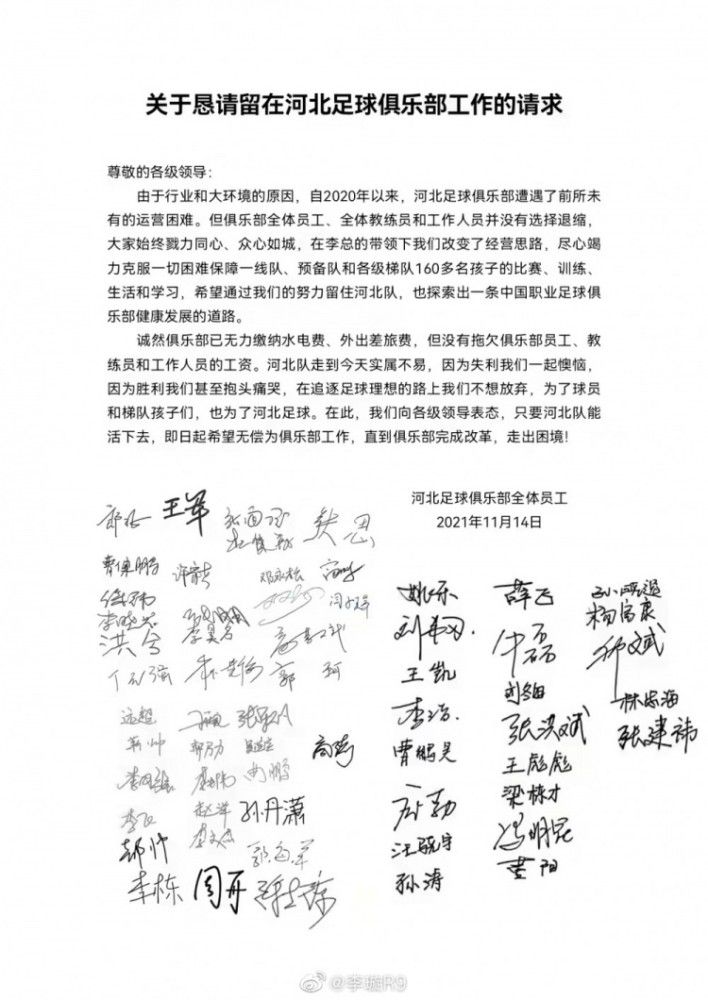 关于恳请留在河北足球俱乐部工作的请求
尊敬的各级领导：
由于行业和大环境的原因，自2020年以来，河北足球俱乐部遭遇了前所未
有的运营困难。但俱乐部全体员工、全体教练员和工作人员并没有选择退缩，
大家始终戮力同心、众心如城，在李总的带领下我们改变了经营思路，尽心竭
力克服一切困难保障一线队、预备队和各级梯队160多名孩子的比赛、训练、
生活和学习，希望通过我们的努力留住河北队，也探索出一条中国职业足球俱
乐部健康发展的道路。
诚然俱乐部已无力缴纳水电费、外出差旅费，但没有拖欠俱乐部员工、教
练员和工作人员的工资。河北队走到今天实属不易，因为失利我们一起懊恼，
因为胜利我们甚至抱头痛哭，在追逐足球理想的路上我们不想放弃，为了球员
和梯队孩子们，也为了河北足球。在此，我们向各级领导表态，只要河北队能
活下去，即日起希望无偿为俱乐部工作，直到俱乐部完成改革，走出困境！
河北足球俱乐部全体员工
2021年11月14日
王军
曹保鹏
洪兮
郭珂
高涛
孙丹潇
郝帅
李栋
周开
姚乐
王凯
李浩
曹鹏昊
孙涛
薛飞
牛磊
张洪斌
王彪彪
梁栋才
冯明昆
黄阳
杨富康
林宏海
张建祎
@李璇R9